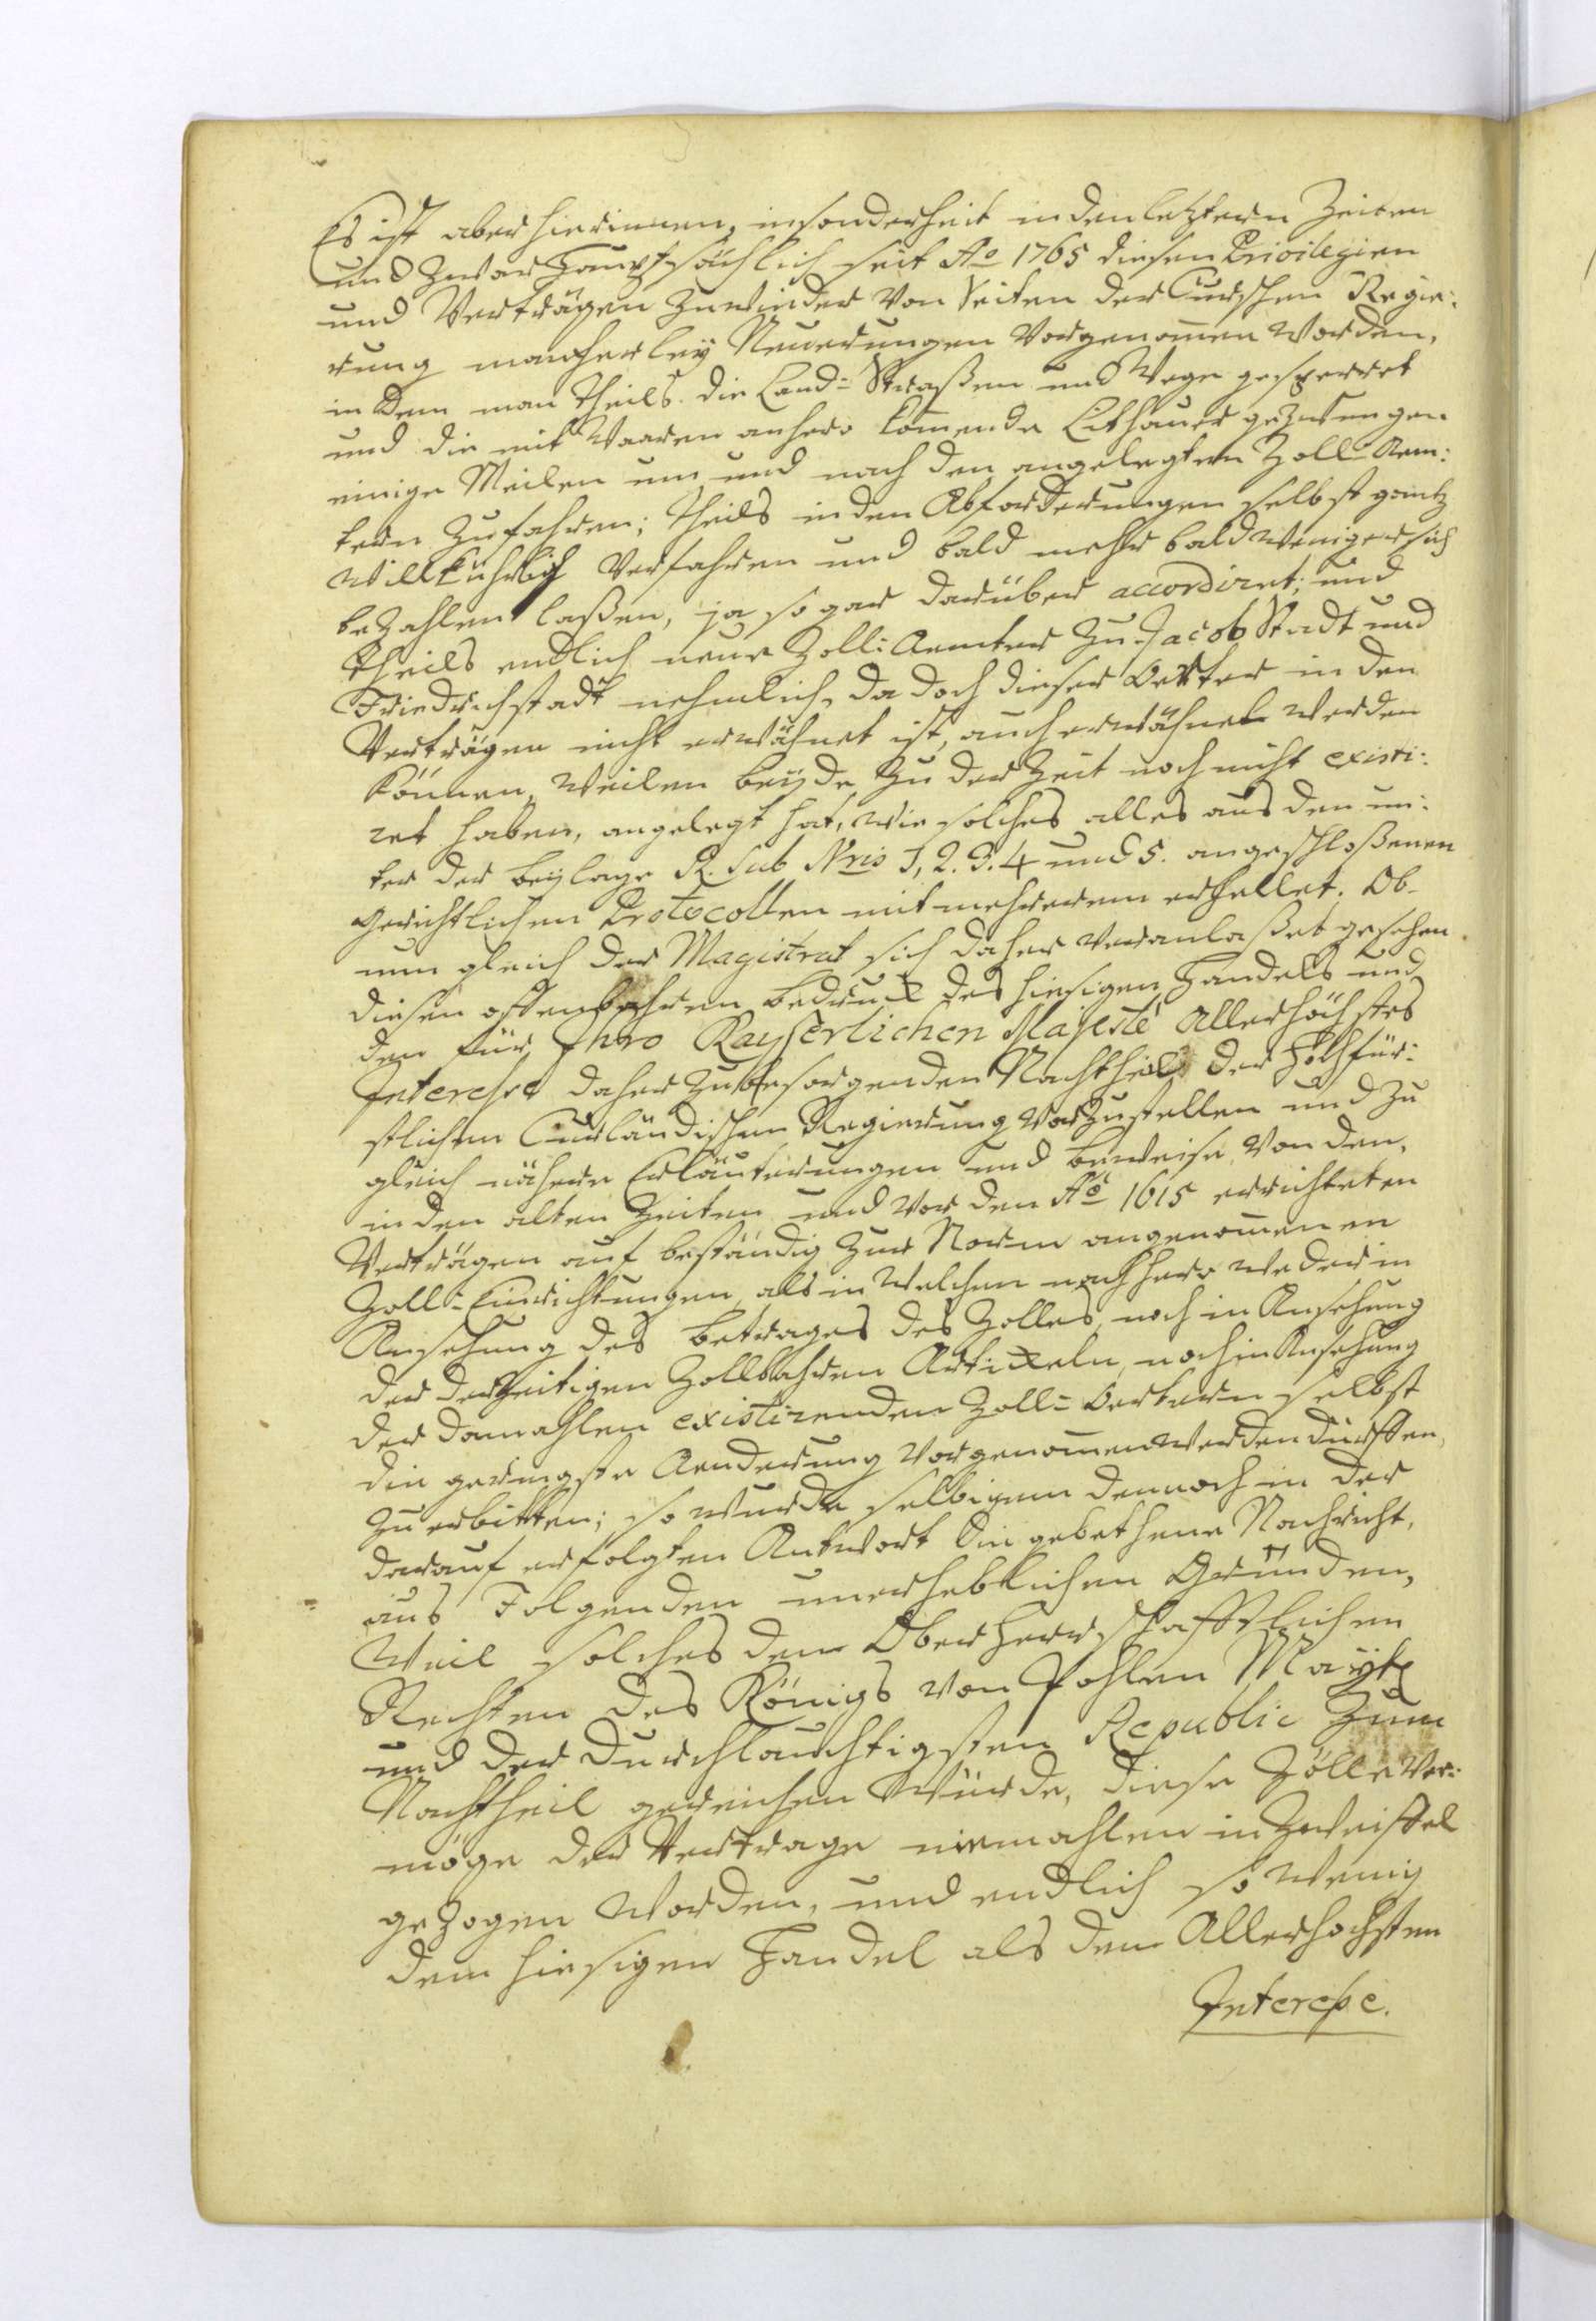 Es ist aber hierinnen, insonderheit in den letztern Zeiten
und zwar Hauptsächlich seit Ao 1765 diesen Privilegien
und Verträgen zuwieder von Seiten der Curschen Regie:
rung mancherley Neuerungen vorgenommen worden,
in dem man theils die Land-Straßen und Wege gesperret
und die mit Waaren anhero kommende Litthauer gezwungen
einige Meilen um und nach den angelegten Zoll-Aem:
tern zu fahren; theils in den Abforderungen selbst gantz
willkührlich verfahren und bald mehr bald weniger sich
bezahlen laßen, ja so gar darüber accordiret; und
theils endlich neue Zoll-Aemter zu Jacob Stadt und
Friedrichstadt nehmlich, da doch dieser Oerter in den
Verträgen nicht erwähnet ist, auch erwähnet werden
können, weilen beyde zu der Zeit noch nicht existi:
ret haben, angelegt hat, wie solches alles aus den un:
ter der Beylage R. sub Nris 1, 2. 3. 4 und 5. angeschloßenen
gerichtlichen Protocollen mit mehrerem erhellet. Ob-
nun gleich der Magistrat sich daher veranlaßet gesehen
diesen offenbahren Bedruck des hiesigen Handels und
den für Ihro Kayserlichen Majesté Allerhöchstes
Interesse daher zu besorgenden Nachtheil der Hochfür:
stlichen Curländischen Regierung vorzustellen und zu
gleich nähere Erläuterungen und Beweise von den,
in den alten Zeiten und vor den Ao 1615 errichteten
Verträgen auf beständig zur Norm angenommenen
Zoll-Einrichtungen, als in welchen nachhero weder in
Ansehung des Betrages des Zolles, noch in Ansehung
der derzeitigen Zollbahren Artickeln, noch in Ansehung
der damahlen existirenden Zoll-Oertern selbst
die geringste Aenderung vorgenommen werden dürffen,
zu erbitten; so wurde selbigem dennoch in der
darauf erfolgten Antwort die gebethene Nachricht,
aus Folgenden unerheblichen Gründen,
Weil solches den Oberherrschafftlichen
Rechten des Königs von Pohlen Mayt
und der Durchlauchtigsten Republic zum
Nachtheil gereichen würde, diese Zölle ver:
möge der Vertrage niemahlen in Zweiffel
gezogen worden, und endlich so wenig
dem hiesigen Handel als dem Allerhöchsten
Interesse.